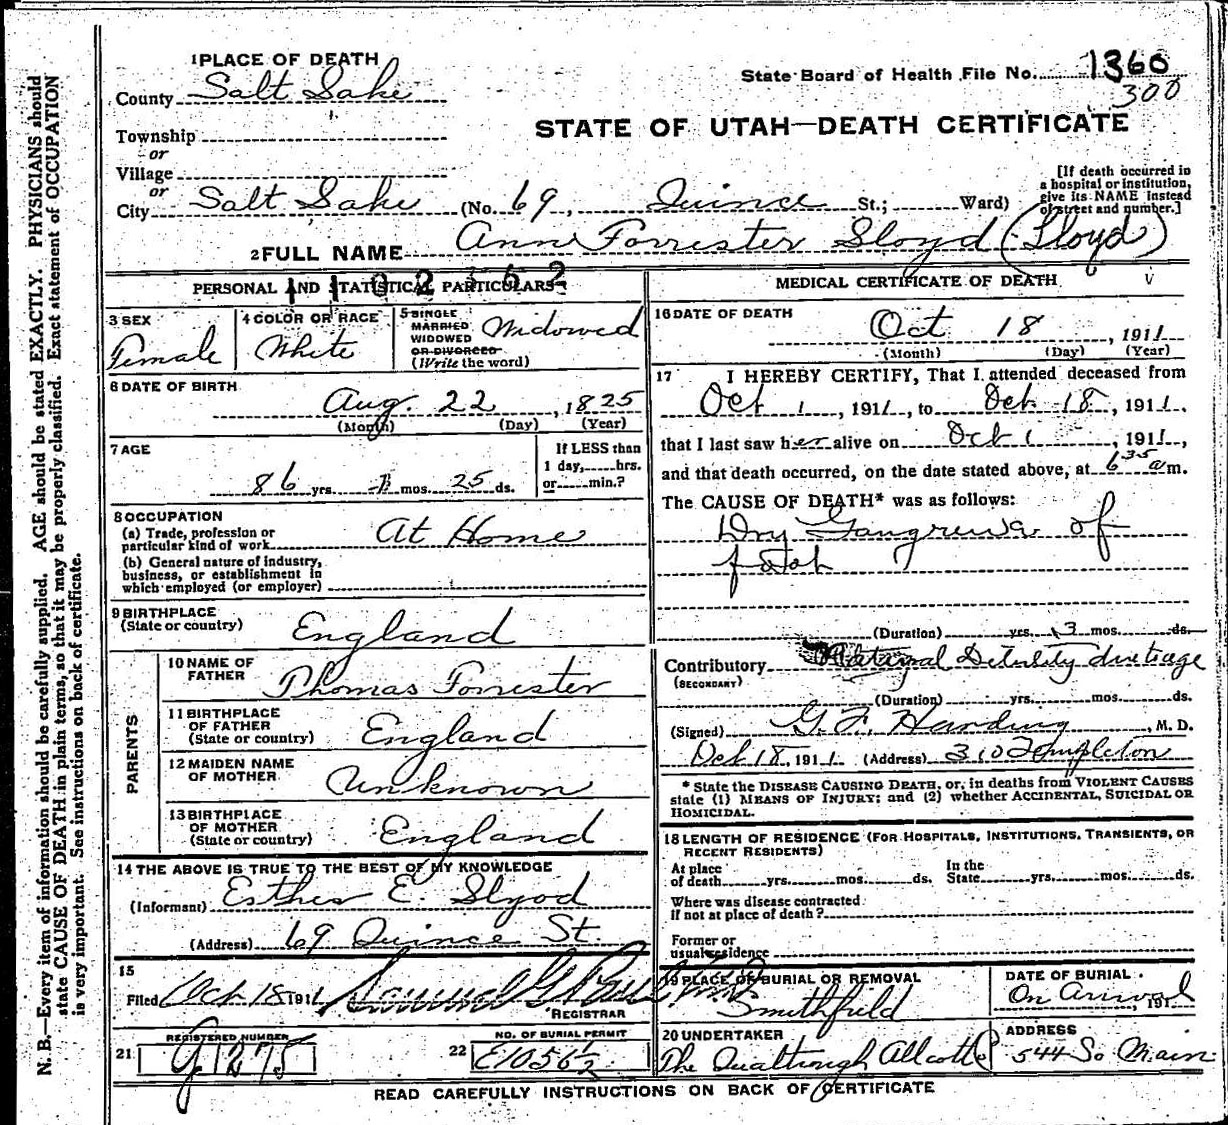 1 PLACE OF DEATH
County Salt Lake
Township
or
Village
or
City Salt Lake (No. 69, Quince St.; Ward)
State Board of Health File No. 1360
300
STATE OF UTAH—DEATH CERTIFICATE
[If death occurred in
a hospital or institution,
give its NAME instead
of street and number.]
2 FULL NAME Ann Forrester Sloyd (Lloyd)
PERSONAL AND STATISTICAL PARTICULARS
3 SEX
Female
4 COLOR OR RACE
White
5 SINGLE
MARRIED
WIDOWED
OR DIVORCED
(Write the word)
Widowed
6 DATE OF BIRTH
Aug. 22, 1825
(Month) (Day) (Year)
7 AGE
86 yrs. 1 mos. 25 ds.
If LESS than
1 day, hrs.
or min.?
8 OCCUPATION
(a) Trade, profession or
particular kind of work At Home
(b) General nature of industry,
business, or establishment in
which employed (or employer)
9 BIRTHPLACE
(State or country) England
PARENTS
10 NAME OF
FATHER Thomas Forrester
11 BIRTHPLACE
OF FATHER
(State or country) England
12 MAIDEN NAME
OF MOTHER Unknown
13 BIRTHPLACE
OF MOTHER
(State or country) England
14 THE ABOVE IS TRUE TO THE BEST OF MY KNOWLEDGE
(Informant) Esther E. Slyod
(Address) 69 Quince St.
15
Filed Oct. 18 1911 Samuel G.
REGISTRAR
REGISTERED NUMBER
21 G1275
NO. OF BURIAL PERMIT
22 E1056½
MEDICAL CERTIFICATE OF DEATH
16 DATE OF DEATH
Oct 18, 1911
(Month) (Day) (Year)
17 I HEREBY CERTIFY, That I attended deceased from
Oct 1, 1911, to Oct 18, 1911,
that I last saw her alive on Oct 1, 1911,
and that death occurred, on the date stated above, at 6 35 a m.
The CAUSE OF DEATH* was as follows:
Dry Gangrene of
foot
(Duration) yrs. 3 mos. ds.
Contributory Debility due to age
(SECONDARY)
(Duration) yrs. mos. ds.
(Signed) G. F. Harding, M. D.
Oct 18, 1911. (Address) 310 Templeton
* State the DISEASE CAUSING DEATH, or, in deaths from VIOLENT CAUSES
state (1) MEANS OF INJURY; and (2) whether ACCIDENTAL, SUICIDAL OR
HOMICIDAL.
18 LENGTH OF RESIDENCE (FOR HOSPITALS, INSTITUTIONS, TRANSIENTS, OR
RECENT RESIDENTS)
At place
of death yrs. mos. ds.
In the
State yrs. mos. ds.
Where was disease contracted
if not at place of death?
Former or
usual residence
19 PLACE OF BURIAL OR REMOVAL
Smithfield
DATE OF BURIAL
On Arrival, 191
20 UNDERTAKER
The Qualtrough Allcott
ADDRESS
544 So Main
READ CAREFULLY INSTRUCTIONS ON BACK OF CERTIFICATE
N. B.—Every item of information should be carefully supplied. AGE should be stated EXACTLY. PHYSICIANS should
state CAUSE OF DEATH in plain terms, so that it may be properly classified. Exact statement of OCCUPATION
is very important. See instructions on back of certificate.